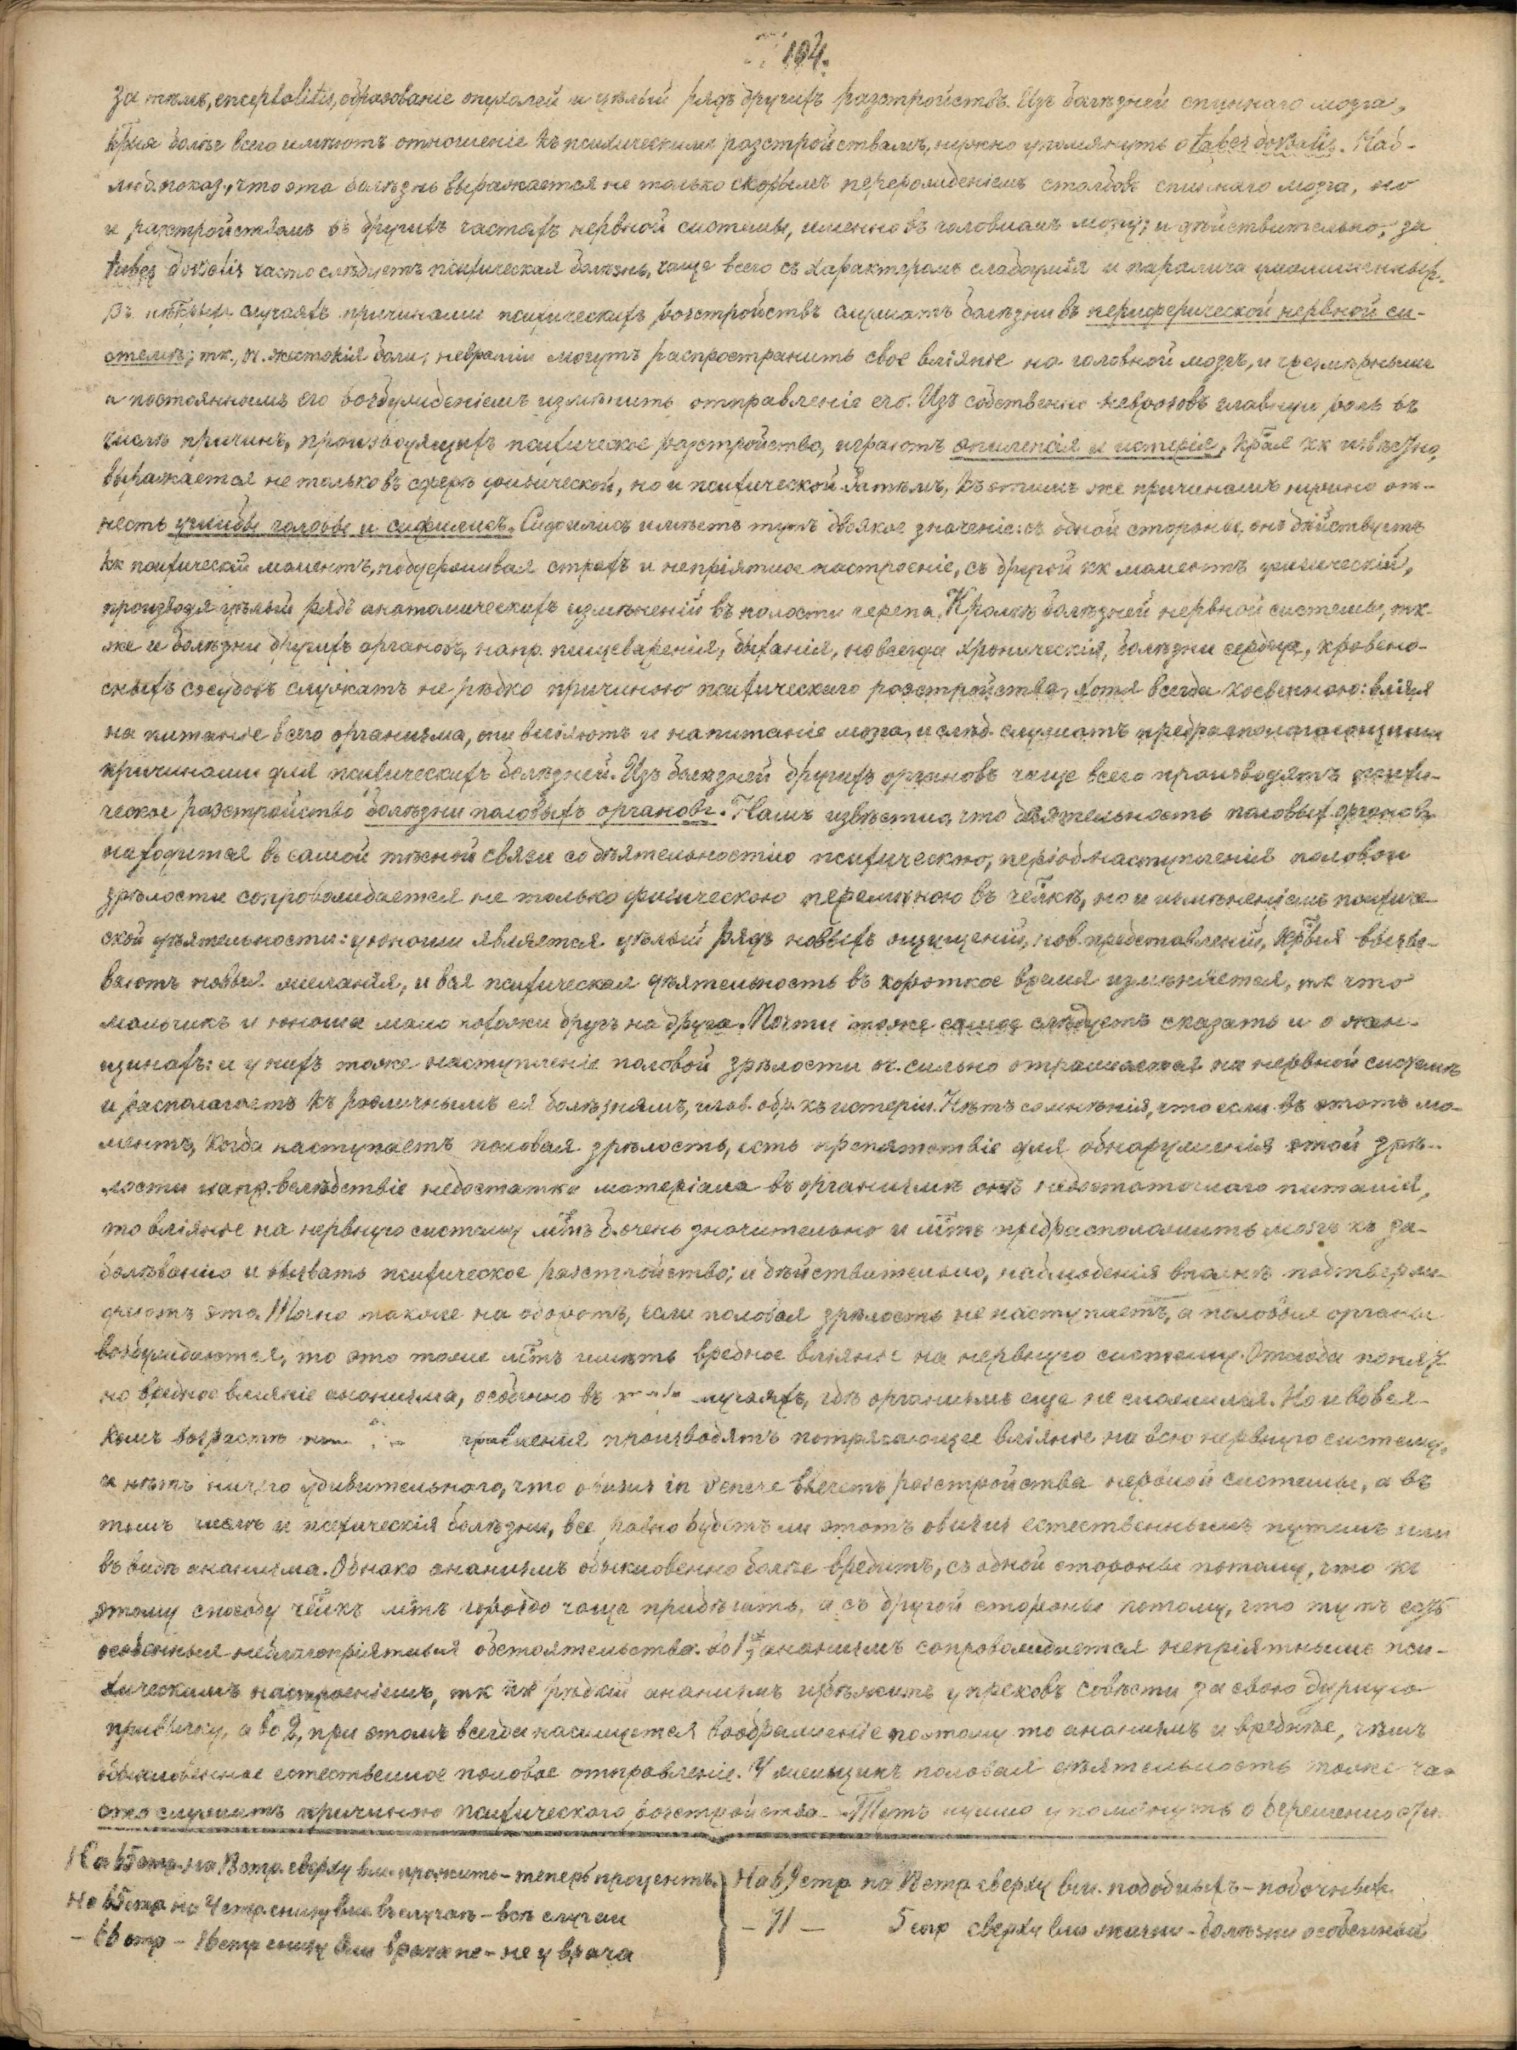 104.
За тѣмъ, encephalitis, образованіе опухолей и цѣлый рядъ другихъ разстройствъ. Изъ болѣзней спиннаго мозга,
крыя болѣе всего имѣютъ отношеніе къ психическимъ разстройствамъ, нужно упомянуть о tabes dorsalis. Наб-
люд. показ., что эта болѣзнь выражается не только скорымъ перерожденіемъ столбовъ спиннаго мозга, но
и разстройствомъ въ другихъ частяхъ нервной системы, именно въ головномъ мозгу; и дѣйствительно, за
tabes dorsalis часто слѣдуетъ психическая болѣзнь, чаще всего съ характеромъ слабоумія и паралича умалишенныхъ.
Въ нѣкрыхъ случаяхъ причинами психическихъ разстройствъ служатъ болѣзни въ периферической нервной си-
стемѣ; тк., н. жестокія боли, невралгіи могутъ распространить свое вліяніе на головной мозгъ, и чрезмѣрнымъ
и постояннымъ его возбужденіемъ измѣнить отправленіе его. Изъ собственно неврозовъ главную роль въ
числѣ причинъ, производящихъ психическое разстройство, играютъ эпилепсія и истерія, края кк извѣстно,
выражается не только въ сферѣ физической, но и психической. Затѣмъ, къ этимъ же причинамъ нужно от-
несть ушибы головы и сифилисъ. Сифилисъ имѣетъ тутъ двоякое значеніе: съ одной стороны, онъ дѣйствуетъ
кк психическій моментъ, поддерживая страхъ и непріятное настроеніе, съ другой кк моментъ физическій,
производя цѣлый рядъ анатомическихъ измѣненій въ полости черепа. Кромѣ болѣзней нервной системы, тк-
же и болѣзни другихъ органовъ, напр. пищеваренія, дыханія, но всегда хроническія, болѣзни сердца, кровено-
сныхъ сосудовъ служатъ не рѣдко причиною психическаго разстройства, хотя всегда косвенною: вліяя
на питаніе всего организма, они вліяютъ и на питаніе мозга, и слѣд. служатъ предрасполагающими
причинами для психическихъ болѣзней. Изъ болѣзней другихъ органовъ чаще всего производятъ психи-
ческое разстройство болѣзни половыхъ органовъ. Намъ извѣстно, что дѣятельность половых. органовъ
находится въ самой тѣсной связи со дѣятельностію психическою, період наступленія половой
зрѣлости сопровождается не только физическою перемѣною въ члкѣ, но и измѣненіемъ психиче-
ской дѣятельности: у юноши является цѣлый рядъ новыхъ ощущеній, нов. представленій, крыя вызы-
ваютъ новыя желанія, и вся психическая дѣятельность въ короткое время измѣняется, тк что
мальчикъ и юноша мало похожи другъ на друга. Почти тоже самое слѣдуетъ сказать и о жен-
щинахъ: и у нихъ тоже наступленіе половой зрѣлости оч. сильно отражается на нервной системѣ
и располагаетъ къ различнымъ ея болѣзнямъ, глав. обр. къ истеріи. Нѣтъ сомнѣнія, что если въ этотъ мо-
ментъ, когда наступаетъ половая зрѣлость, есть препятствіе для обнаруженія этой зрѣ-
лости напр. вслѣдствіе недостатка матеріала въ организмѣ отъ недостаточнаго питанія,
то вліяніе на нервную систему мтъ б. очень значительно и мтъ предрасположить мозгъ къ за-
болѣванію и вызвать психическое разстройство; и дѣйствительно, наблюденія вполнѣ подтверж-
даютъ это. Точно также на оборотъ, если половая зрѣлость не наступаетъ, а половые органы
возбуждаются, то это тоже мтъ имѣть вредное вліяніе на нервную систему. Отсюда понят-
но вредное вліяніе онанизма, особенно въ случаяхъ, гдѣ организмъ еще не сложился. Но и во вся-
комъ возрастѣ производятъ потрясающее вліяніе на всю нервную систему,
и нѣтъ ничего удивительнаго, что abusus in Venere влечетъ разстройства нервной системы, а въ
томъ числѣ и психическія болѣзни, все равно будетъ ли этотъ abusus естественнымъ путемъ или
въ видѣ онанизма. Однако онанизмъ обыкновенно болѣе вредитъ, съ одной стороны потому, что къ
этому способу члкъ мтъ гораздо чаще прибѣгать, а съ другой стороны потому, что тутъ есть
особенныя неблагопріятныя обстоятельства. Во 1х онанизмъ сопровождается непріятнымъ пси-
хическимъ настроеніемъ, тк кк рѣдкій онанизмъ избѣжитъ упрековъ совѣсти за свою дурную
привычку, а во 2, при этомъ всегда насилуется воображеніе поэтому то онанизмъ и вреднѣе, чѣмъ
обыкновенное естественное половое отправленіе. У женщинъ половая дѣятельность тоже ча-
сто служитъ причиною психическаго разстройства. Тутъ нужно упомянуть о беременности.
На 65 стр. на 13 стр. сверху вм. прожито – теперь процентъ.
На 65 стр на 4 стр снизу вм. въ случаѣ – всѣ случаи
– 66 стр – 16 стр снизу вм врача не – не у врача
На 69 стр на 13 стр сверху вм. подобныхъ – побочныхъ
– 71 – 5 стр сверху вм жизни – болѣзни особенной